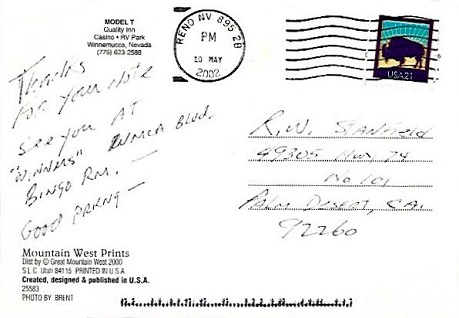 MODEL T
Quality Inn
Casino • RV Park
Winnemucca, Nevada
(775) 623 2588
RENO NV 895 2B
PM
10 MAY
2002
USA21
Thanks
For your note
See you AT
"WINNERS" WMCA Blvd.
BINGO RM. —
GOOD PRKNG —
R.W. Stanfield
49305 Hwy. 74
No 101
Palm Desert, CA.
92260
Mountain West Prints
Dist by © Great Mountain West 2000
S.L.C. Utah 84115 PRINTED IN U.S.A.
Created, designed & published in U.S.A.
25583
PHOTO BY: BRENT